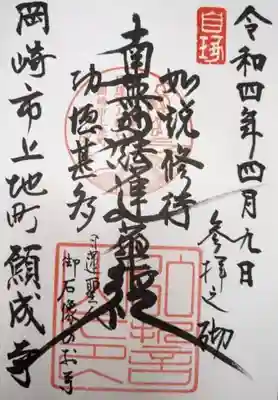 令和四年四月九日
参拝之砌
如説修行
南無妙法蓮華経
功徳甚多
日蓮聖人
御石像のお寺
岡崎市上地町願成寺